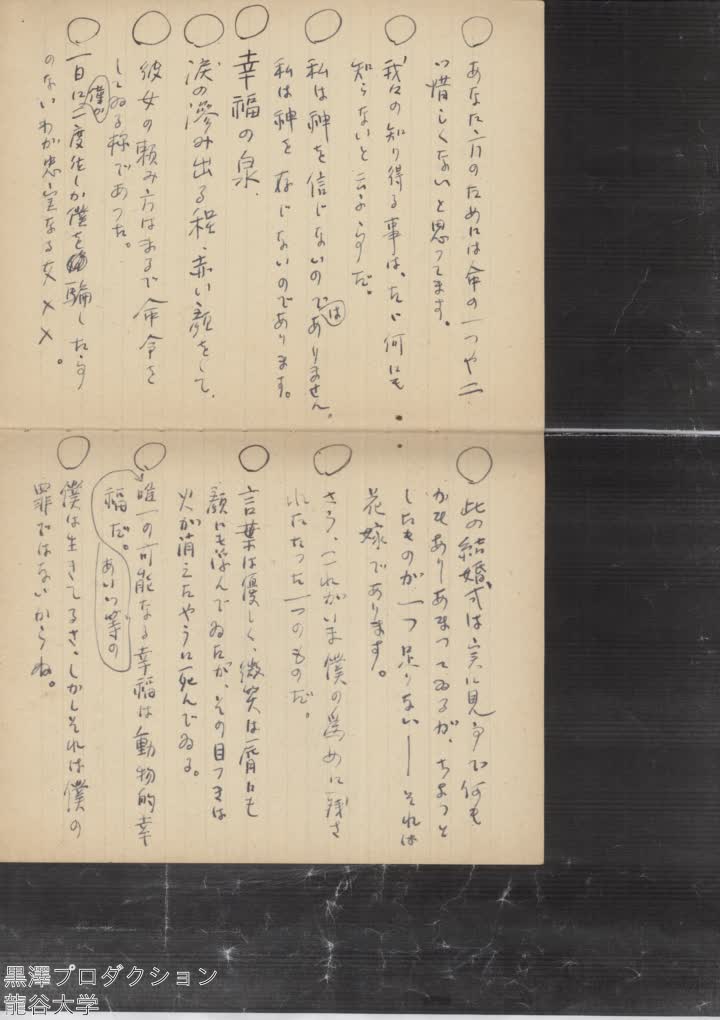 ○ あなた方のためには命の一つや二
つ惜しくないと思ってます。
○ 我々の知り得る事は、たゞ何にも
知らないと云ふ事だ。
○ 私は神を信じないのではありません。
私は神を存じないのであります。
○ 幸福の泉.
○ 涙の滲み出る程、赤い顔をして、
○ 彼女の頼み方はまるで命令を
してゐる様であつた。
○ 一日に僅か二度位しか僕を騙した事
のないわが忠実なる女××。
○ 此の結婚式は実に見事で何も
かもありあまつてゐるが、ちよつと
したものが一つ足りない――それは
花嫁であります。
○ さう、これがいま僕の為めに残さ
れたたつた一つのものだ。
○ 言葉は優しく、微笑は唇にも
顔にも浮んでゐたが、その目つきは
火が消えたやうに死んでゐる。
○ あいつ等の唯一の可能なる幸福は動物的幸
福だ。
○ 僕は生きてるさ、しかしそれは僕の
罪ではないからね。
黒澤プロダクション
龍谷大学